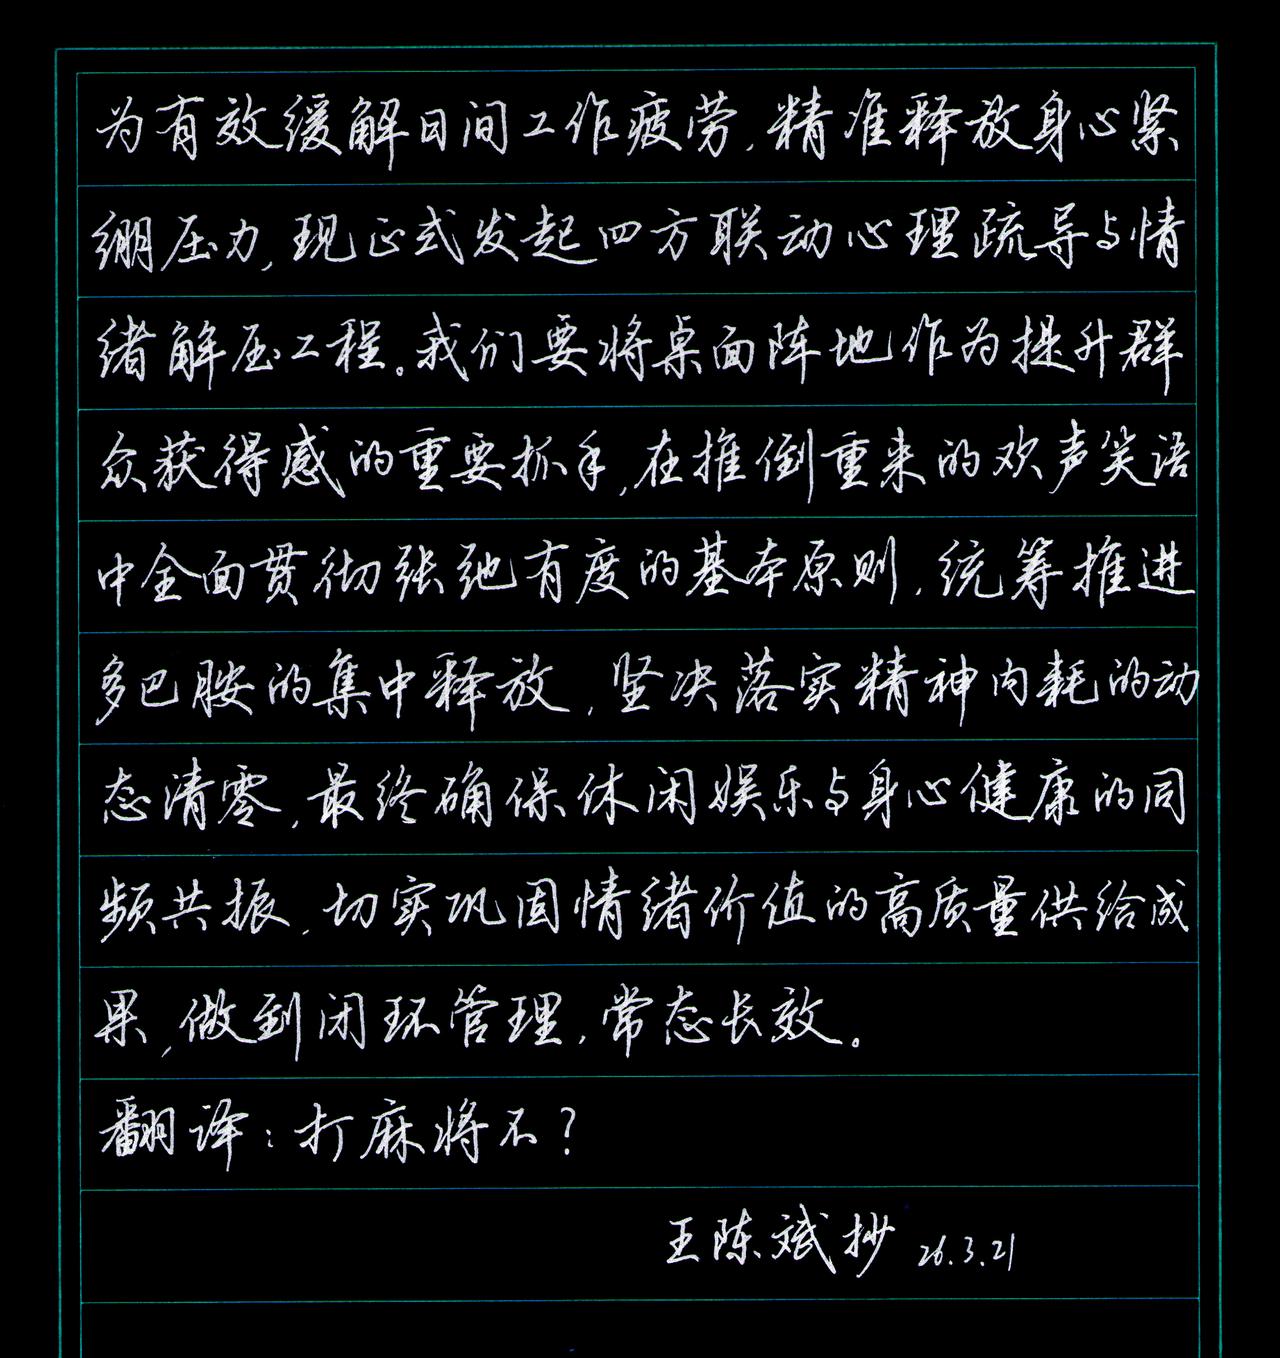 为有效缓解日间工作疲劳，精准释放身心紧
绷压力，现正式发起四方联动心理疏导与情
绪解压工程。我们要将桌面阵地作为提升群
众获得感的重要抓手，在推倒重来的欢声笑语
中全面贯彻张弛有度的基本原则，统筹推进
多巴胺的集中释放，坚决落实精神内耗的动
态清零，最终确保休闲娱乐与身心健康的同
频共振，切实巩固情绪价值的高质量供给成
果，做到闭环管理，常态长效。
翻译：打麻将不？
王陈斌抄 26.3.21